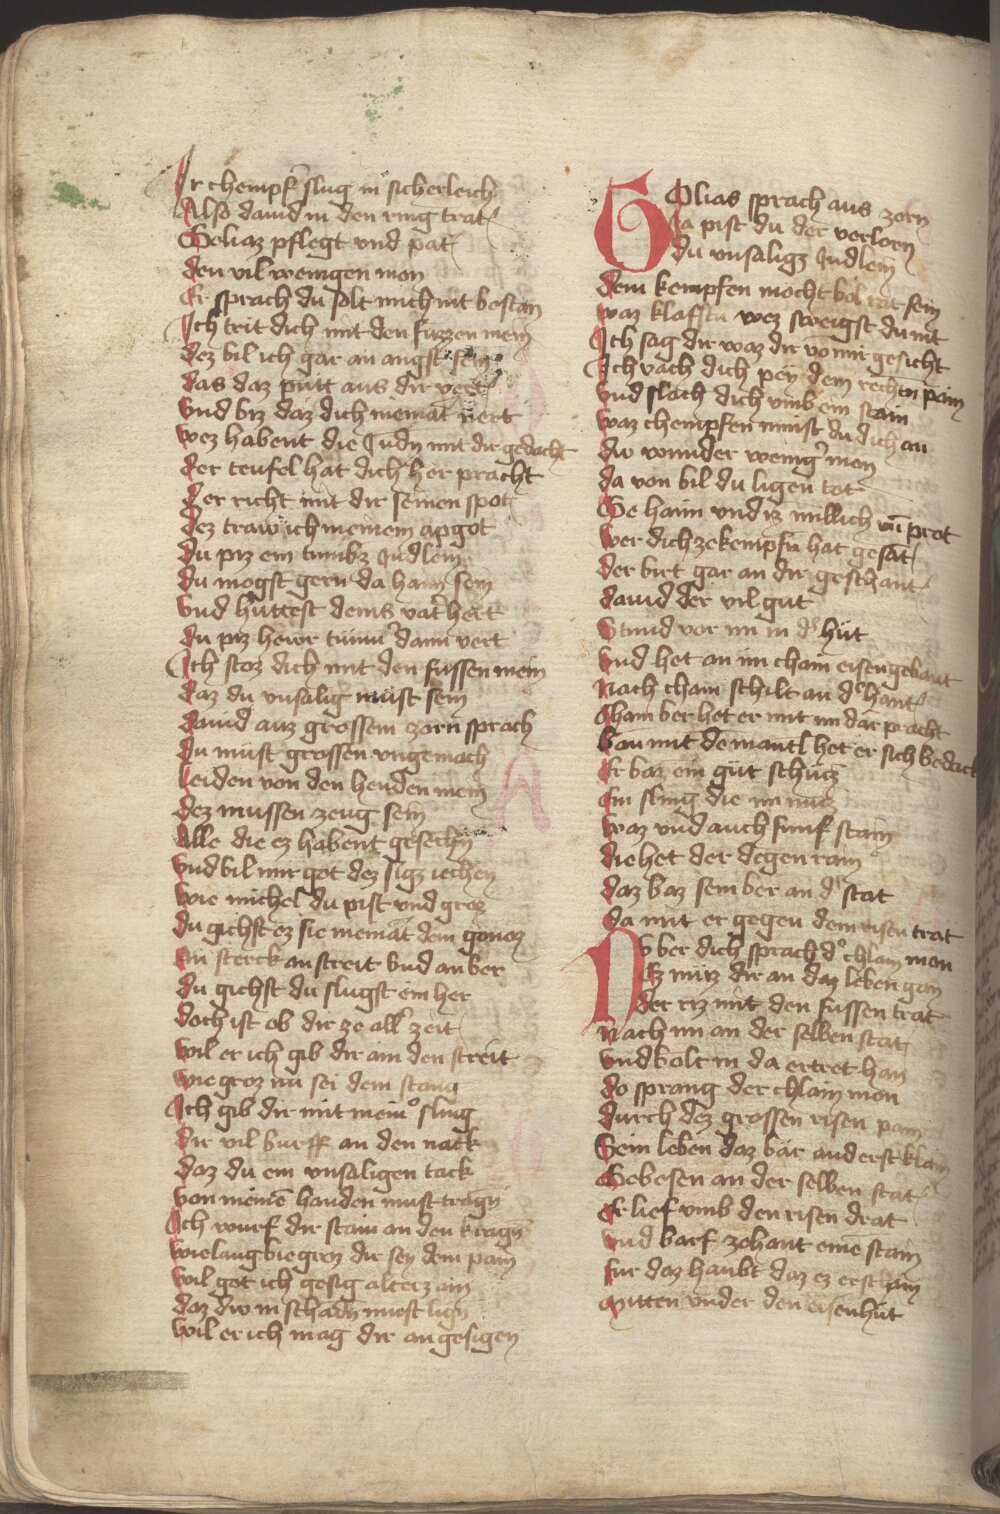 Ir chempf slug in sicherleich
Also dauid in den ring trat
Goliaz pflegt vnd pat
den vil wenigen mon
Er sprach du solt mich nit bestan
Ich trit dich mit den fuzzen mein
dez bil ich gar an angst sein
das daz putt aus dir vert
Vnd biz daz dich niemāt nert
Wez habent die Judn mit dir gedacht
der teufel hat dich her pracht
der richt mit dir seinen spot
dez traw ich meinem apgot
du piz ein tumbz Judlein
du mogst gern da haim sein
Vnd huttest deins vat' hert
du piz hewr tumm' dann vert
Ich stoz dich mit den fussen mein
daz du vnsalig must sein
dauid auz grossem zorn sprach
du must grossen vngemach
leiden von den henden mein
dez mussen zeug sein
Alle die ez habent gesechn
Vnd bil mir got dez sigz iechen
Wie michel du pist vnd groz
du gichst ez sie niemāt dein gonoz
An sterck an streit vnd an ber
du gichst du slugst ein her
doch ist ob dir ze all' zeit
Wil er ich gib dir ain den streit
Wie groz nu sei dein stang
Ich gib dir mit mein' sling
dir vil burff an den nack
daz du ein vnsaligen tack
von meinē handen must tragn
Ich wurf dir stain an den kragn
Wie lang bie groz dir sey dein pain
Wil got ich gesig alterz ain
daz diw in schadn must lign
Wil er ich mag dir an gesigen
Golias sprach aus zorn
Ja pist du der verlorn
du vnsaligz Judlein
dem kempfen mocht bol rat sein
Waz klafstu wez sweigst du nit
Ich sag dir waz dir vō mir gesicht
Ich vach dich pey dem rechten pain
Vnd slach dich vmb ein stain
Waz chempfen nimst du dich an
dw vnnder wenig' mon
da von bil du ligen tot
Ge haim vnd iz millich vn̄ prot
Wer dich ze kempfn hat gesat
der birt gar an dir geschant
dauid der vil gut
Stund vor im in d' hut
Vnd het an im chain eisengebant
Nach chain schilt an d' hant
Cham ber het er mit im dar pracht
ban mit de mantl het er sich bedact
Er baz ein gut schucz
Ein sling die im nucz
Waz vnd auch funf stain
die het der degen rain
daz baz sein ber an d' stat
da mit er gegen dem risen trat
Nv ber dich sprach d' chlain mon
Ez mirz dir an daz leben gan
der riz mit den fussen trat
Nach im an der selben stat
Vnd bolt in da ertret han
do sprang der chlain mon
durch dez grossen risen pain
Sein leben daz bar anderst klain
Gebesen an der selben stat
Er lief vmb den risen drat
Vnd barf zehant einē stain
fur daz haubt daz ez erschain
Mitten vnder den eisenhut